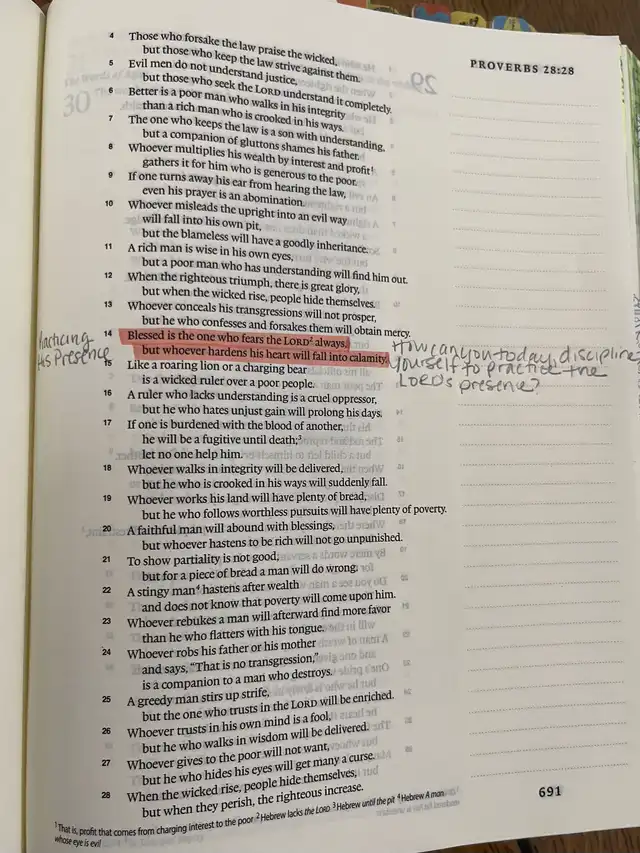 PROVERBS 28:28
29
30
4 Those who forsake the law praise the wicked,
but those who keep the law strive against them.
5 Evil men do not understand justice,
but those who seek the LORD understand it completely.
6 Better is a poor man who walks in his integrity
than a rich man who is crooked in his ways.
7 The one who keeps the law is a son with understanding,
but a companion of gluttons shames his father.
8 Whoever multiplies his wealth by interest and profit¹
gathers it for him who is generous to the poor.
9 If one turns away his ear from hearing the law,
even his prayer is an abomination.
10 Whoever misleads the upright into an evil way
will fall into his own pit,
but the blameless will have a goodly inheritance.
11 A rich man is wise in his own eyes,
but a poor man who has understanding will find him out.
12 When the righteous triumph, there is great glory,
but when the wicked rise, people hide themselves.
13 Whoever conceals his transgressions will not prosper,
but he who confesses and forsakes them will obtain mercy.
14 Blessed is the one who fears the LORD² always,
but whoever hardens his heart will fall into calamity.
Practicing
His Presence
How can you today, discipline
yourself to practice the
LORD's presence?
15 Like a roaring lion or a charging bear
is a wicked ruler over a poor people.
16 A ruler who lacks understanding is a cruel oppressor,
but he who hates unjust gain will prolong his days.
17 If one is burdened with the blood of another,
he will be a fugitive until death;³
let no one help him.
18 Whoever walks in integrity will be delivered,
but he who is crooked in his ways will suddenly fall.
19 Whoever works his land will have plenty of bread,
but he who follows worthless pursuits will have plenty of poverty.
20 A faithful man will abound with blessings,
but whoever hastens to be rich will not go unpunished.
21 To show partiality is not good,
but for a piece of bread a man will do wrong.
22 A stingy man⁴ hastens after wealth
and does not know that poverty will come upon him.
23 Whoever rebukes a man will afterward find more favor
than he who flatters with his tongue.
24 Whoever robs his father or his mother
and says, "That is no transgression,"
is a companion to a man who destroys.
25 A greedy man stirs up strife,
but the one who trusts in the LORD will be enriched.
26 Whoever trusts in his own mind is a fool,
but he who walks in wisdom will be delivered.
27 Whoever gives to the poor will not want,
but he who hides his eyes will get many a curse.
28 When the wicked rise, people hide themselves,
but when they perish, the righteous increase.
691
¹ That is, profit that comes from charging interest to the poor ² Hebrew lacks the LORD ³ Hebrew until the pit ⁴ Hebrew A man
whose eye is evil